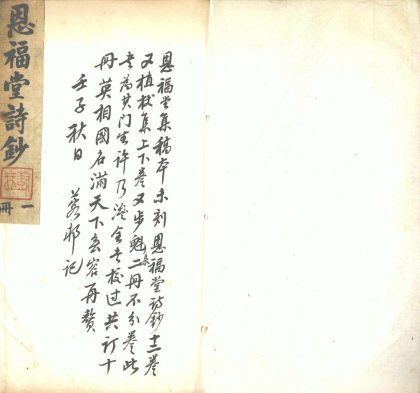 恩福堂詩鈔
一冊
恩福堂集稿本未刻恩福堂詩鈔十二卷
又植杖集上下卷又步魁集二冊不分卷此
老為其门生许乃濟全考校过共订十
冊英相國名滿天下玄容再贅
壬子秋日 蓉邨记